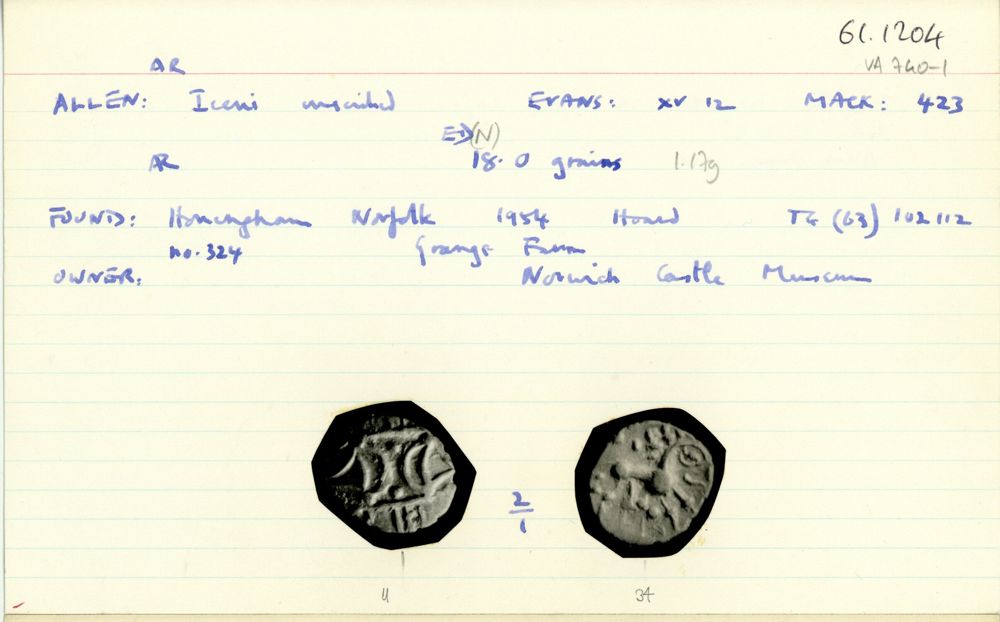 61.1204
VA 740-1
AR
ALLEN: Iceni inscribed EVANS: XV 12 MACK: 423
ED(N)
AR 18.0 grains 1.17g
FOUND: Honingham Norfolk 1954 Hoard TG (63) 102112
no. 324 Grange Farm
OWNER: Norwich Castle Museum
2
1
34